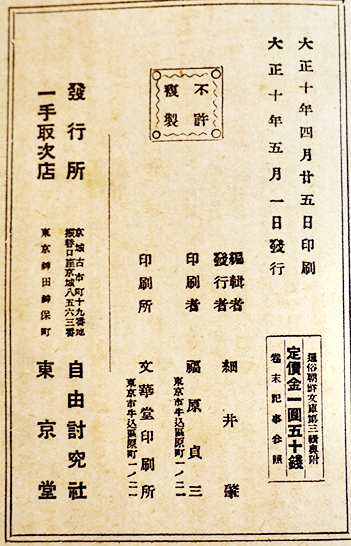 大正十年四月廿五日印刷
大正十年五月一日發行
不許
複製
通俗朝鮮文庫第三輯奥附
定價金一圓五十錢
卷末記事参照
編輯者
發行者
細井肇
印刷者
福原貞三
東京市牛込區原町一ノ二一
印刷所
文華堂印刷所
東京市牛込區原町一ノ二一
發行所
京城古市町十九番地
振替口座京城八五六三番
自由討究社
一手取次店
東京神田神保町
東京堂